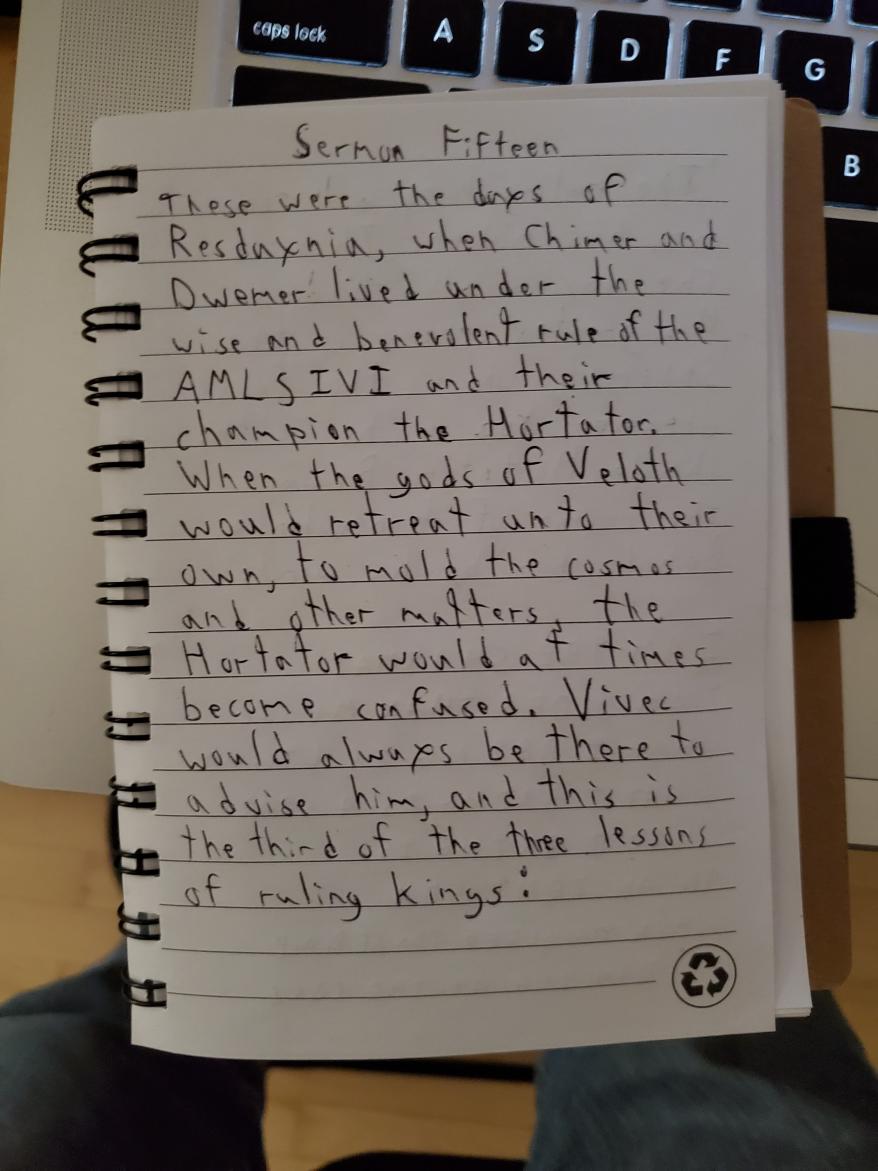 caps lock
A
S
D
F
G
B
Sermon Fifteen
These were the days of
Resdaynia, when Chimer and
Dwemer lived under the
wise and benevolent rule of the
AMLSIVI and their
champion the Hortator.
When the gods of Veloth
would retreat unto their
own, to mold the cosmos
and other matters, the
Hortator would at times
become confused. Vivec
would always be there to
advise him, and this is
the third of the three lessons
of ruling kings: